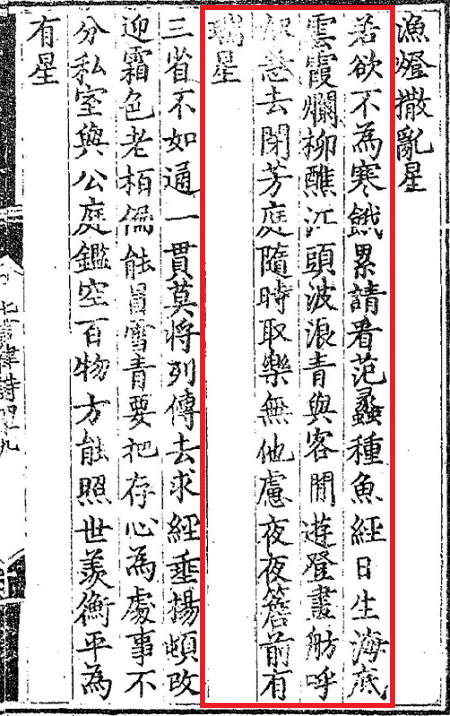 漁燈撒亂星
若欲不為寒餓累請看范蠡種魚經日生海底
雲霞爛柳蘸江頭波浪青與客閒遊登畫舫呼
奴急去閉芳庭隨時取樂無他慮夜夜簷前有
瑞星
三省不如通一貫莫將列傳去求經垂楊頓改
迎霜色老栢偏能冒雪青要把存心為處事不
分私室與公庭鑑空百物方能照世羨衡平為
有星
七言律詩四十九